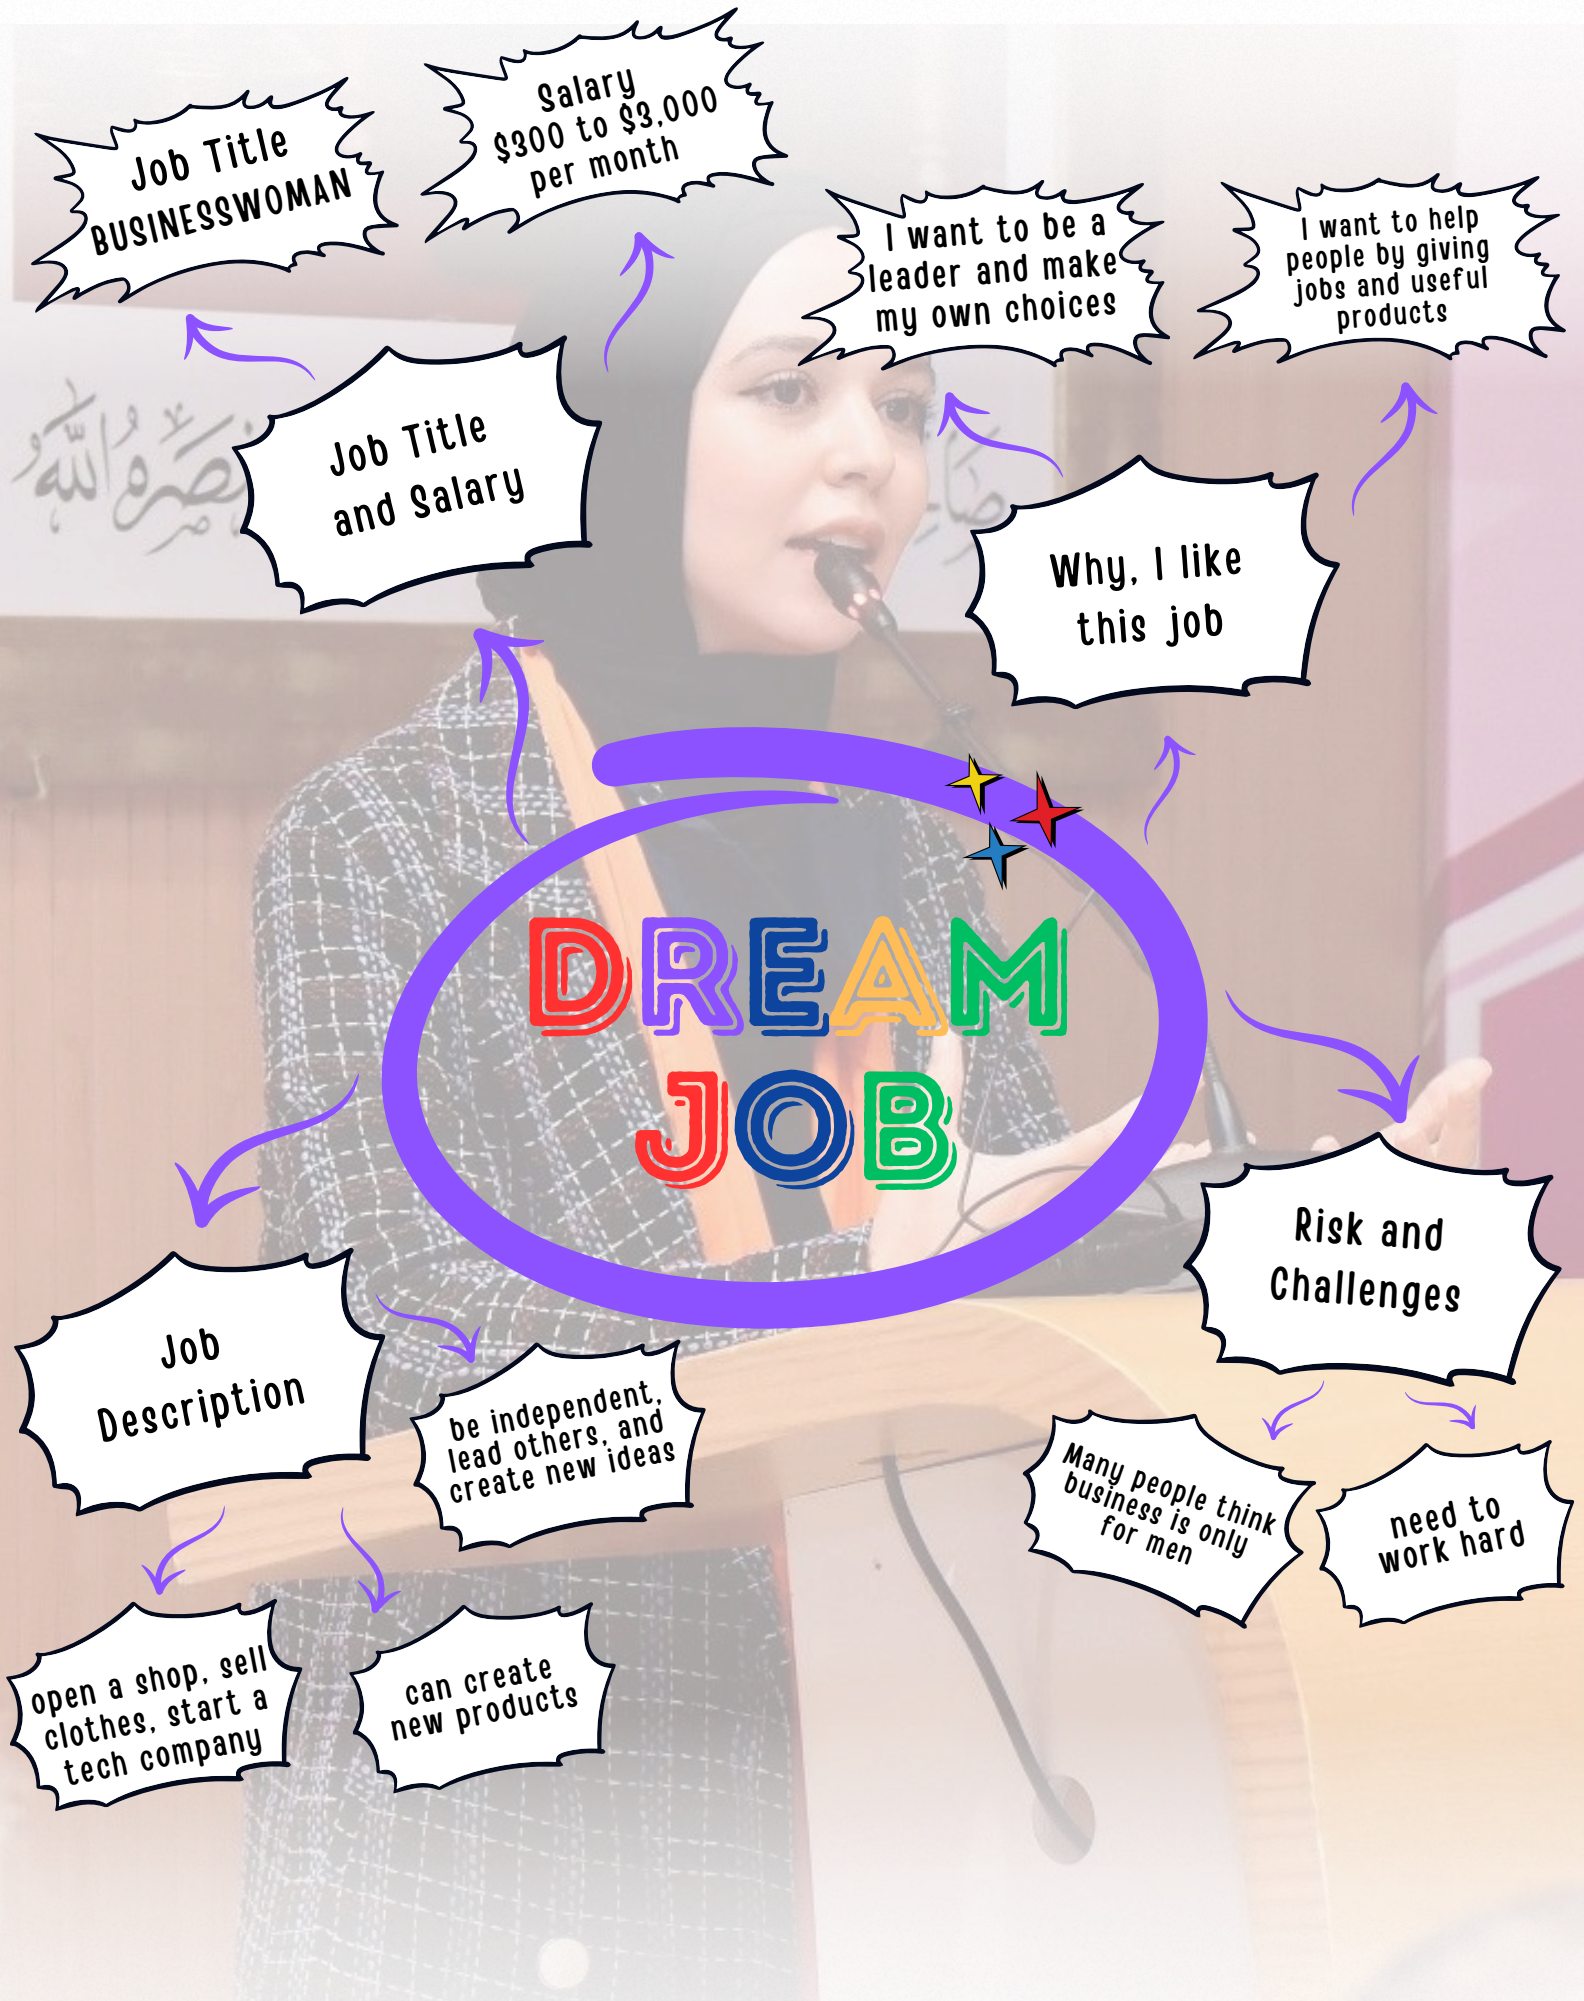 Salary
$300 to $3,000
per month
Job Title
BUSINESSWOMAN
I want to be a
leader and make
my own choices
I want to help
people by giving
jobs and useful
products
Job Title
and Salary
Why, I like
this job
DREAM
JOB
Risk and
Challenges
Job
Description
be independent,
lead others, and
create new ideas
Many people think
business is only
for men
need to
work hard
open a shop, sell
clothes, start a
tech company
can create
new products